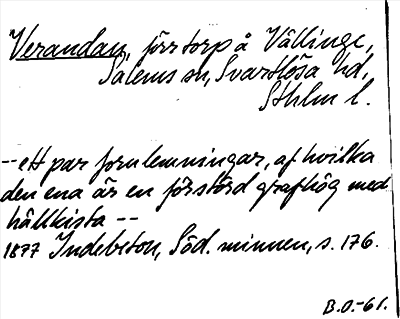 Verandan, förr torp å Vällinge,
Salems sn, Svartlösa hd,
Sthlm l.
-- ett par fornlemningar, af hvilka
den ena är en förstörd grafhög med
hällkista --
1877 Indebetou, Söd. minnen, s. 176.
B.O.-61.